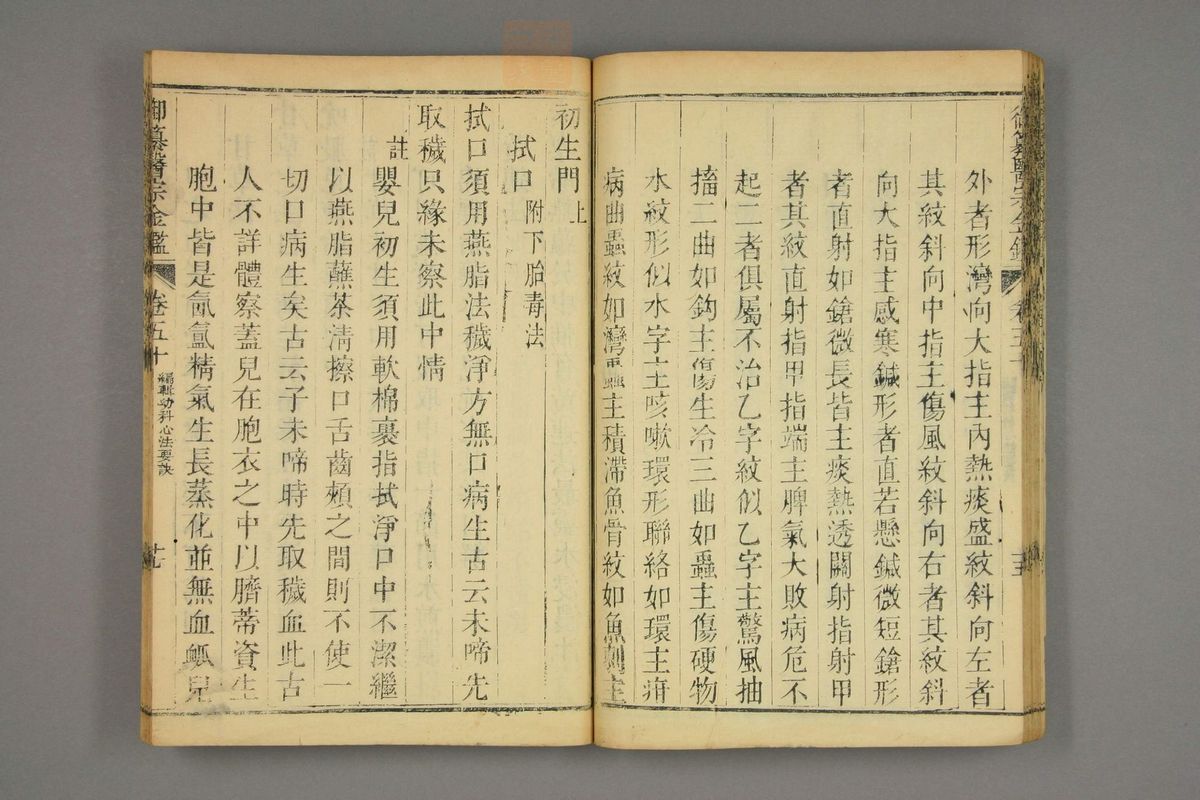 外者形灣向大指主內熱痰盛紋斜向左者
其紋斜向中指主傷風紋斜向右者其紋斜
向大指主感寒鍼形者直若懸鍼微短鎗形
者直射如鎗微長皆主痰熱透關射指射甲
者其紋直射指甲指端主脾氣大敗病危不
起二者俱屬不治乙字紋似乙字主驚風抽
搐二曲如鈎主傷生冷三曲如蟲主傷硬物
水紋形似水字主咳嗽環形聯絡如環主疳
病曲蟲紋如灣蟲主積滯魚骨紋如魚刺主
初生門上
拭口附下胎毒法
拭口須用燕脂法穢淨方無口病生古云未啼先
取穢只緣未察此中情
註嬰兒初生須用軟棉裹指拭淨口中不潔繼
以燕脂蘸茶淸擦口舌齒頰之間則不使一
切口病生矣古云子未啼時先取穢血此古
人不詳體察蓋兒在胞衣之中以臍蒂資生
胞中皆是氤氳精氣生長蒸化並無血瓠兒
御纂醫宗金鑑
卷五十
編輯幼科心法要訣